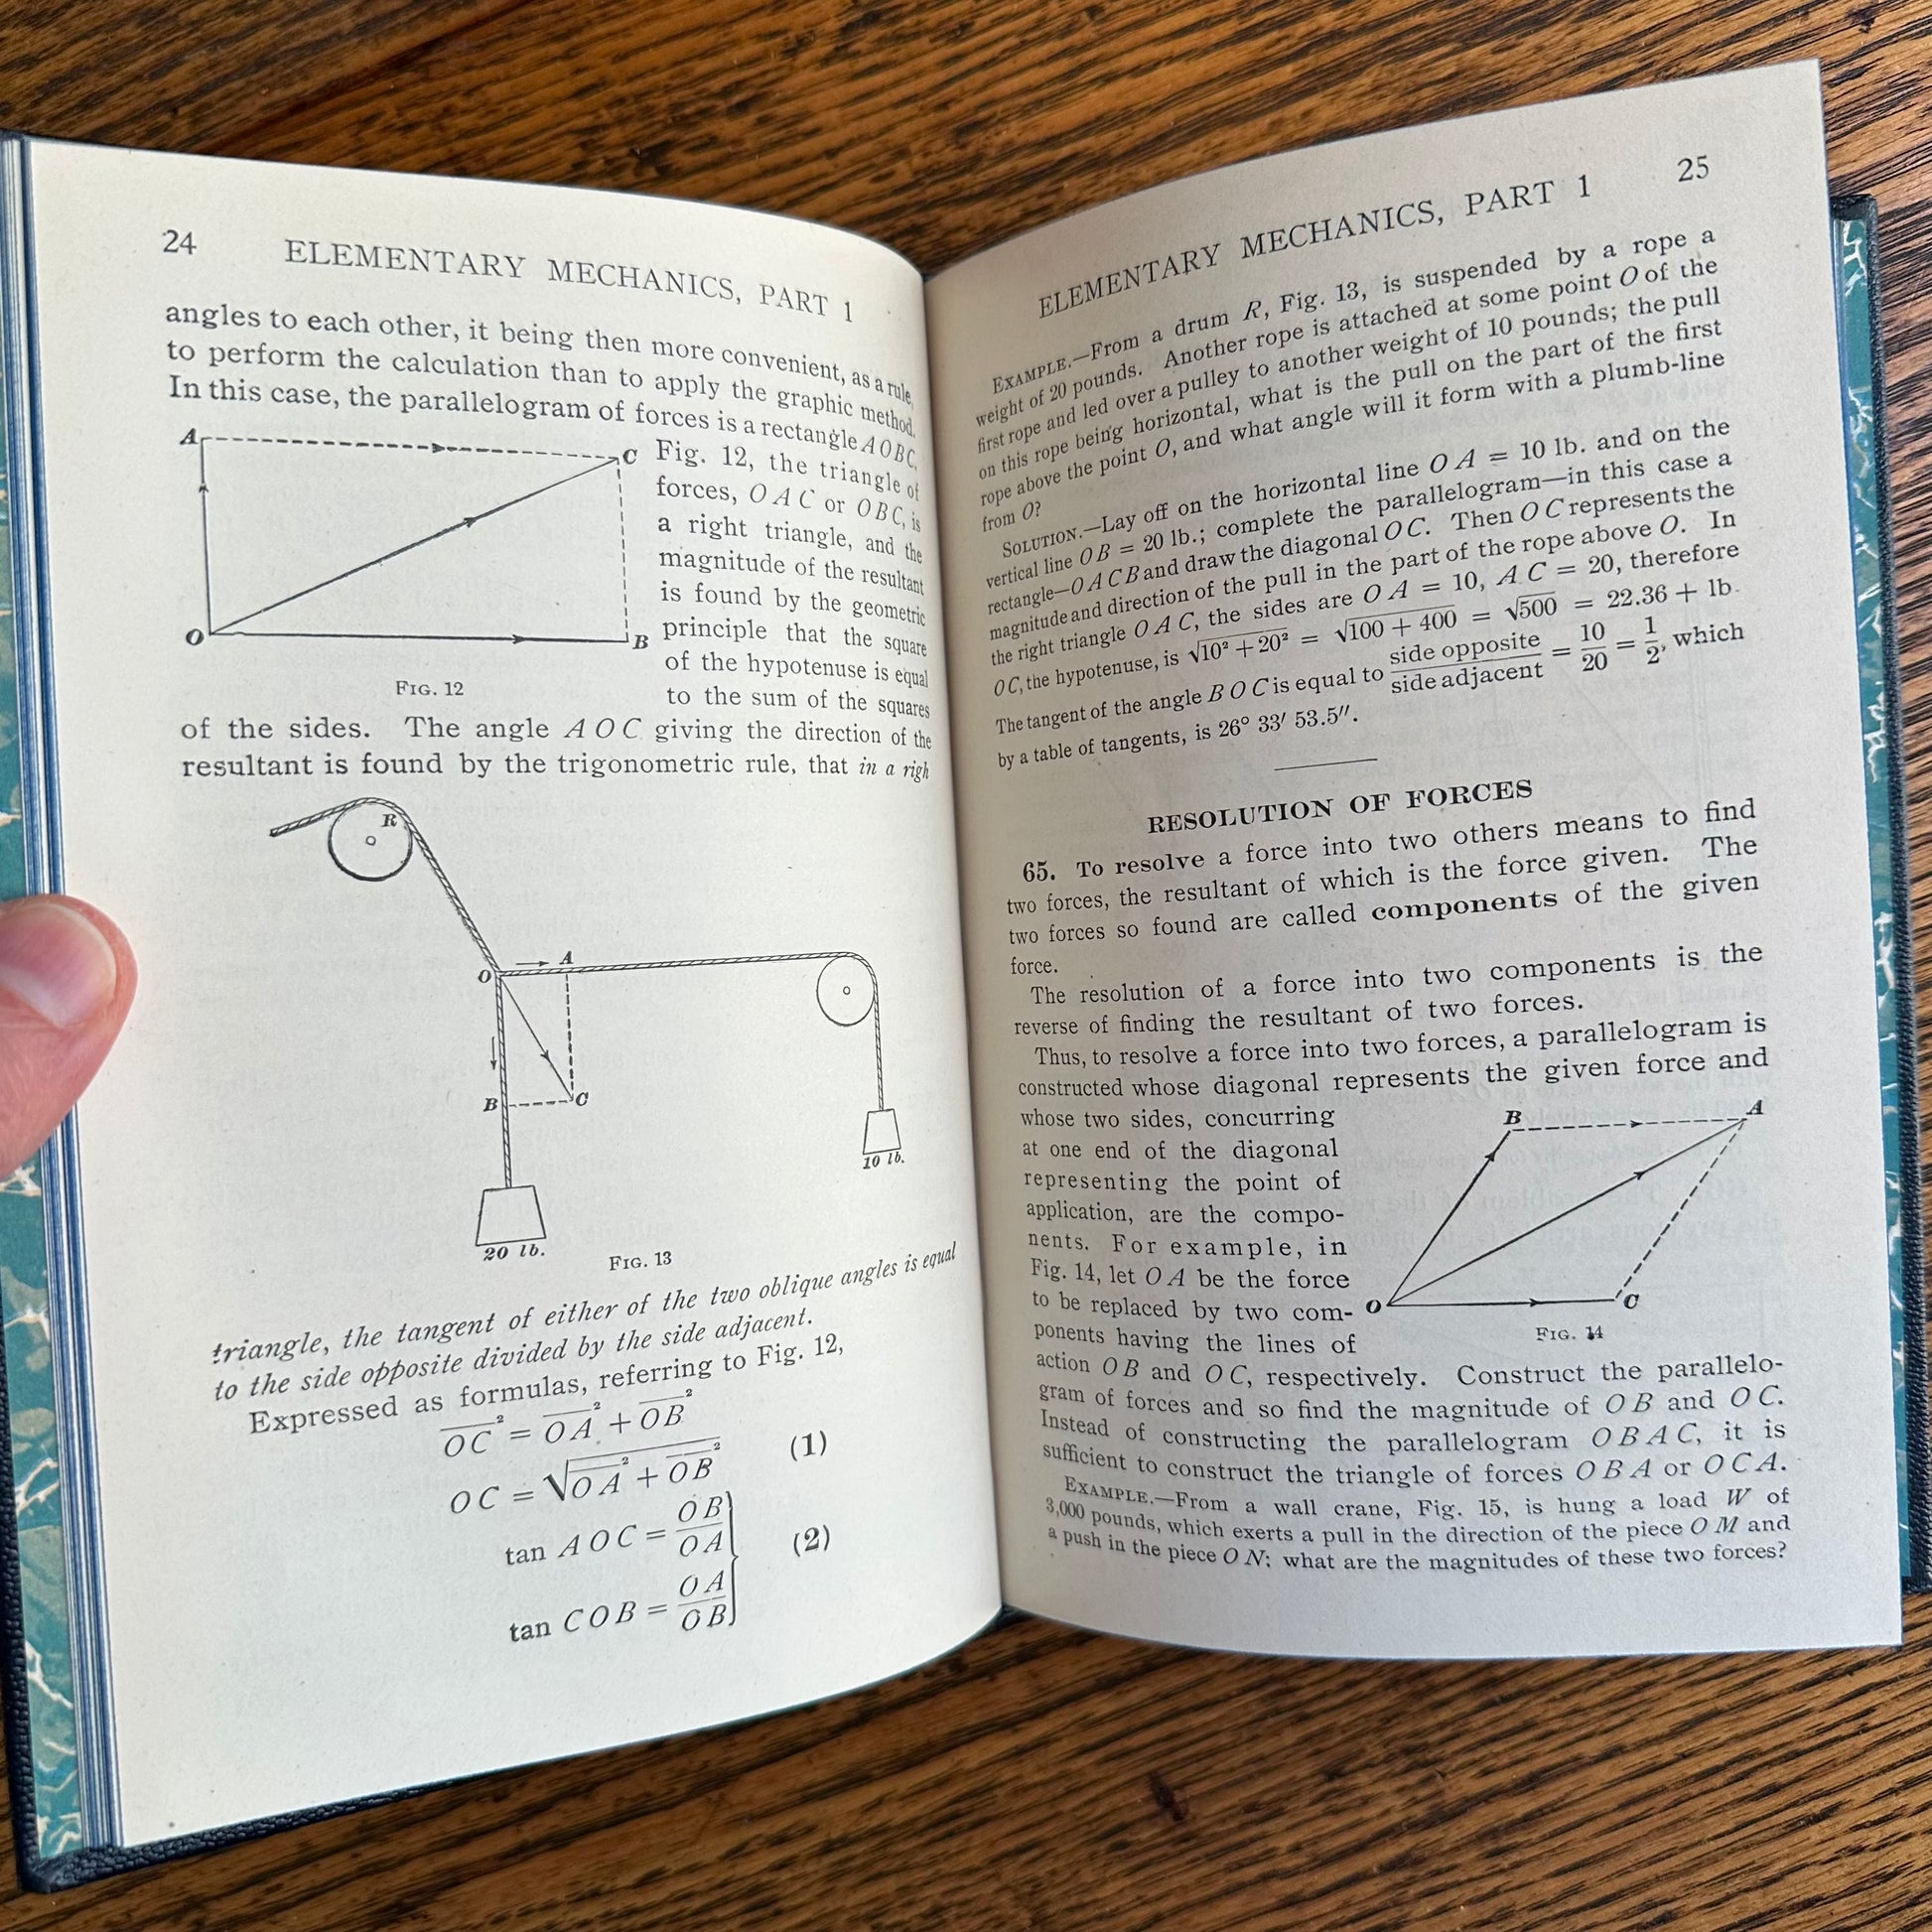 24 ELEMENTARY MECHANICS, PART 1
angles to each other, it being then more convenient, as a rule,
to perform the calculation than to apply the graphic method.
In this case, the parallelogram of forces is a rectangle A O B C,
Fig. 12, the triangle of
forces, O A C or O B C, is
a right triangle, and the
magnitude of the resultant
is found by the geometric
principle that the square
of the hypotenuse is equal
to the sum of the squares
A
C
O
B
FIG. 12
of the sides. The angle A O C giving the direction of the
resultant is found by the trigonometric rule, that in a righ
R
O
A
B
C
10 lb.
20 lb.
FIG. 13
triangle, the tangent of either of the two oblique angles is equal
to the side opposite divided by the side adjacent.
Expressed as formulas, referring to Fig. 12,
OC² = OA² + OB²
OC = √OA² + OB² (1)
tan A O C = OB/OA
(2)
tan C O B = OA/OB
ELEMENTARY MECHANICS, PART 1 25
EXAMPLE.—From a drum R, Fig. 13, is suspended by a rope a
weight of 20 pounds. Another rope is attached at some point O of the
first rope and led over a pulley to another weight of 10 pounds; the pull
on this rope being horizontal, what is the pull on the part of the first
rope above the point O, and what angle will it form with a plumb-line
from O?
SOLUTION.—Lay off on the horizontal line O A = 10 lb. and on the
vertical line O B = 20 lb.; complete the parallelogram—in this case a
rectangle—O A C B and draw the diagonal O C. Then O C represents the
magnitude and direction of the pull in the part of the rope above O. In
the right triangle O A C, the sides are O A = 10, A C = 20, therefore
O C, the hypotenuse, is √10² + 20² = √100 + 400 = √500 = 22.36 + lb.
The tangent of the angle B O C is equal to side opposite/side adjacent = 10/20 = 1/2, which
by a table of tangents, is 26° 33′ 53.5″.
RESOLUTION OF FORCES
65. To resolve a force into two others means to find
two forces, the resultant of which is the force given. The
two forces so found are called components of the given
force.
The resolution of a force into two components is the
reverse of finding the resultant of two forces.
Thus, to resolve a force into two forces, a parallelogram is
constructed whose diagonal represents the given force and
whose two sides, concurring
at one end of the diagonal
representing the point of
application, are the compo-
nents. For example, in
Fig. 14, let O A be the force
to be replaced by two com-
ponents having the lines of
B
A
O
C
FIG. 14
action O B and O C, respectively. Construct the parallelo-
gram of forces and so find the magnitude of O B and O C.
Instead of constructing the parallelogram O B A C, it is
sufficient to construct the triangle of forces O B A or O C A.
EXAMPLE.—From a wall crane, Fig. 15, is hung a load W of
3,000 pounds, which exerts a pull in the direction of the piece O M and
a push in the piece O N: what are the magnitudes of these two forces?